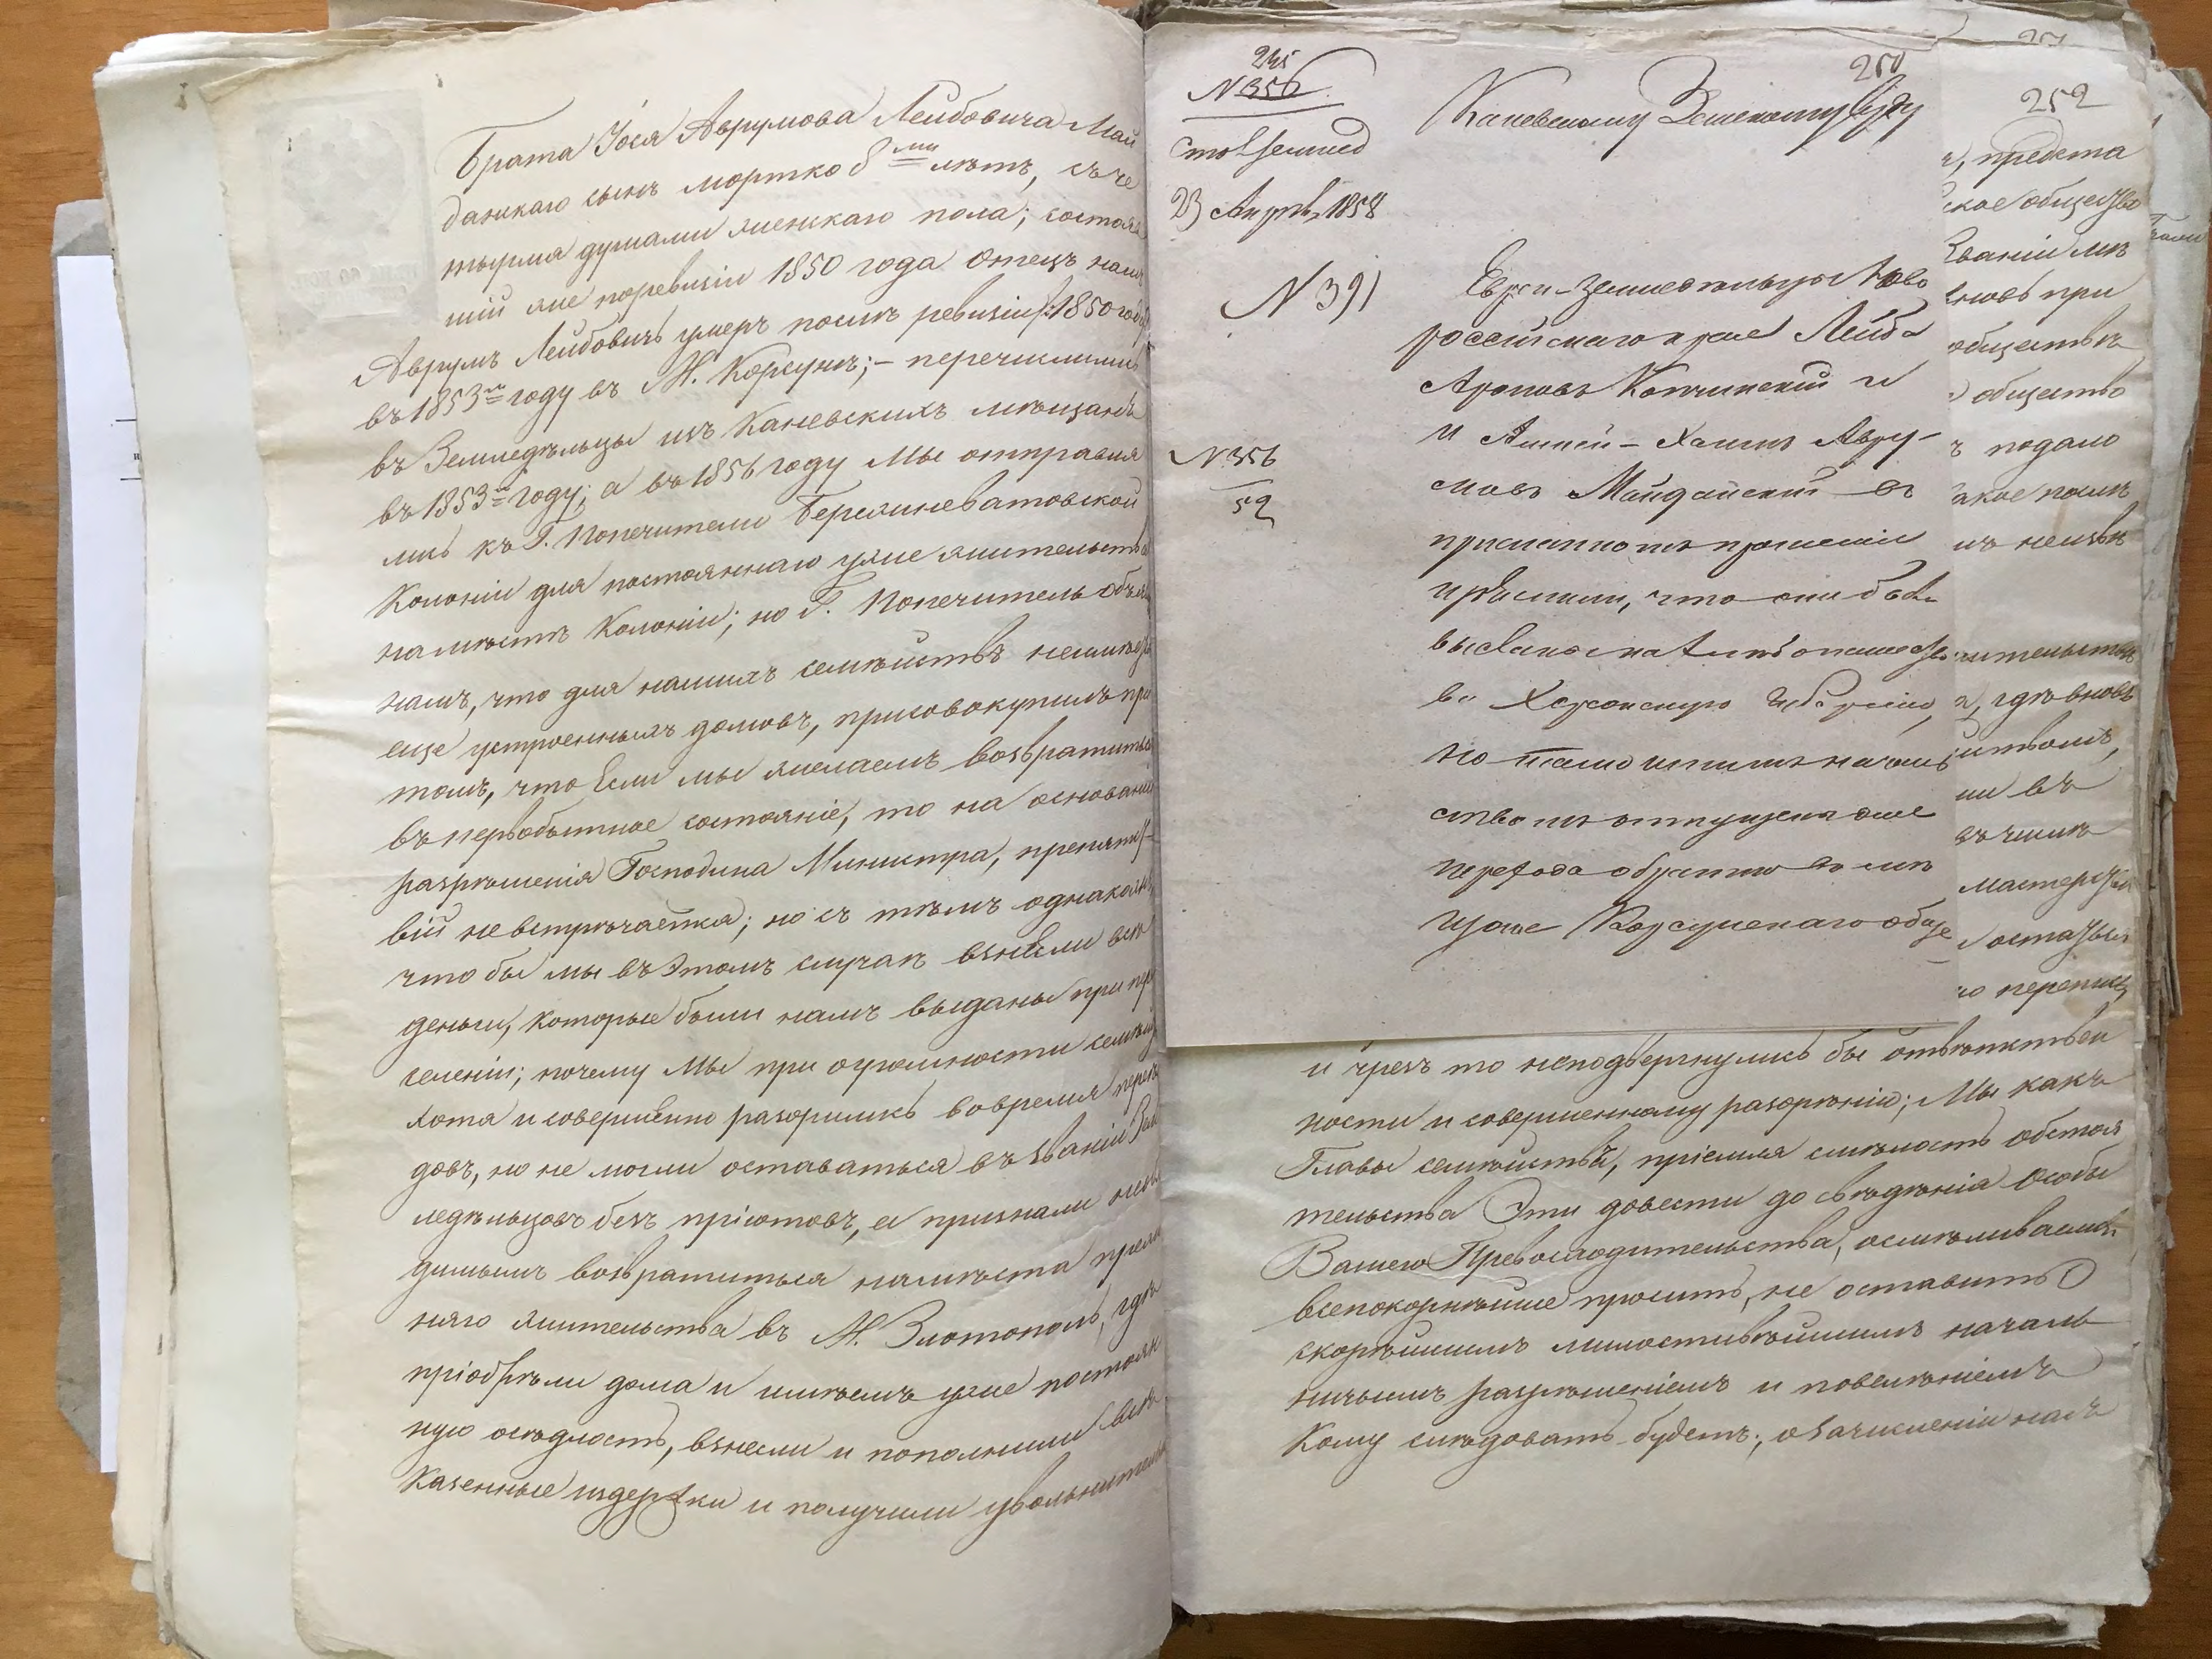 Брата Іося Аврумова Лейбовича Май
данскаго сынъ Мортко 8ми лѣтъ, съ че
тырмя душами женскаго пола; состояв
шій же по ревизіи 1850 года отецъ нашъ
Аврумъ Лейбовичъ умеръ послѣ ревизіи 1850 года
въ 1853м году въ М. Корсунѣ; – перечислились
въ Земледѣльцы изъ Каневскихъ мѣщанъ
въ 1853м году; а въ 1856 году Мы отправля
лись къ Г. Попечителю Бережневатовской
Колоніи для постояннаго уже жительства
на мѣстѣ Колоніи; но Г. Попечитель объяв
намъ, что для нашихъ семѣйствъ неимѣетъ
еще устроенныхъ домовъ, присовокупилъ при
томъ, что Если мы желаемъ возвратиться
въ первобытное состояніе, то на основаніи
разрѣшенія Господина Министра, препятст
вій невстрѣчается; но съ тѣмъ однакожъ
что бы мы въ Этомъ случаѣ взнесли всѣ
деньги, которые были намъ выданы при пере
селеніи; почему Мы при огромности семѣй
хотя и совершенно разорились вовремя перехо
довъ, но не могли оставаться въ званіи Зем
ледѣльцовъ безъ пріютовъ, а признали необхо
димымъ возвратиться на мѣста преж
няго жительства въ М. Златополь, гдѣ
пріобрѣли дома и имѣемъ уже постоян
ную осѣдлость, взнесли и пополнили всѣ
Казенные издержки и получили увольнитель
245
N 356
23 Апрѣля 1858
N 391
N 356
52
250
Каневскому Земскому Суду
Евреи-Земледѣльцы Ново
россійскаго края Лейба
Ароновъ Копчинскій и
и Аврум
мовъ Майданскій въ
присланномъ прошеніи
изъяснили, что они были
высланы на
въ Херсонскую Губернію,
но тамошнимъ началь
ствомъ отпущены для
перехода обратно въ мѣ
щане Корсунскаго обще
252
предста
ское общество
званіи мѣ
вновь при
обществѣ
общество
подало
такое послѣ
неизвѣ
жительства
гдѣ вновь
ии въ
въ числѣ
мастерской
остаться
перепись
и чрезъ то неподвергнулись бы отвѣтствен
ности и совершенному разорѣнію; Мы какъ
Главы семѣйствъ, пріемля смѣлость обстоя
тельства Эти довести до свѣдѣнія Особы
Вашего Превосходительства, осмѣливаемся
всепокорнѣйше просить, не оставить
скорѣйшимъ милостивѣйшимъ началь
ничьимъ разрѣшеніемъ и повелѣніемъ
Кому слѣдовать будетъ; о зачисленіи насъ